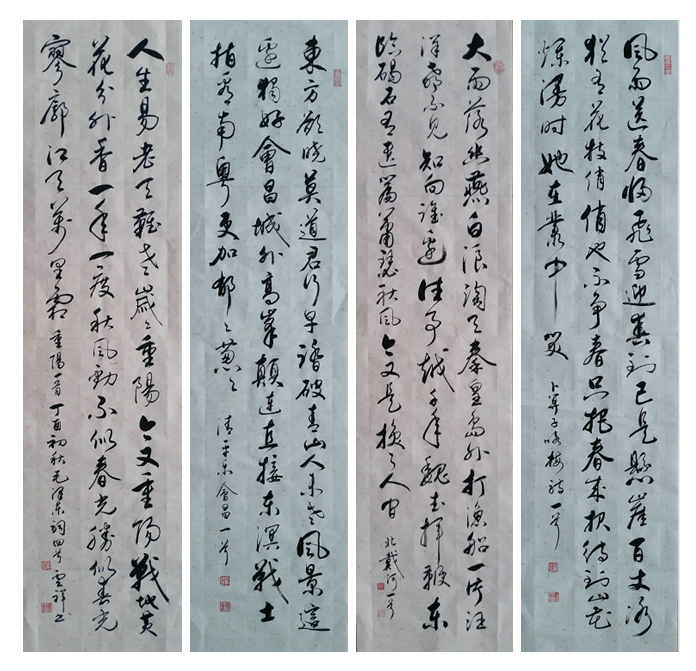 風雨送春归飛雪迎春到已是懸崖百丈冰
猶有花枝俏俏也不争春只把春来报待到山花
爛漫时她在叢中笑 卜算子咏梅詞一首
大雨落幽燕白浪滔天秦皇岛外打渔船一片汪
洋都不见知向誰边往事越千年魏武揮鞭东
临碣石有遗篇萧瑟秋风今又是换了人间 北戴河一首
東方欲曉莫道君行早踏破青山人未老風景這
邊獨好會昌城外高峯顛連直接东溟戰士
指看南粤更加郁々葱々 清平乐會昌一首
人生易老天難老歲々重陽今又重阳戰地黄
花分外香一年一度秋風勁不似春光勝似春光
寥廓江天萬里霜 重陽一首 丁酉初秋毛泽东詞四首雲祥书